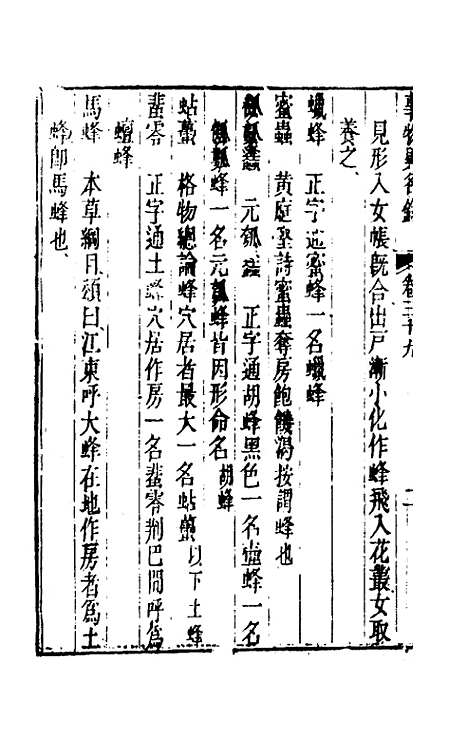 事物異名錄 卷三十九 二
見形入女帳既合出戶漸小化作蜂飛入花叢女取
養之
蠟蜂 正字通蜜蜂一名蠟蜂
蜜蟲 黃庭堅詩蜜蟲奪房飽饑渴按謂蜂也
瓠𤬛蠭 元瓠蠭 正字通胡蜂黑色一名壺蜂一名
瓠𤬛蜂一名元瓠蜂皆因形命名 胡蜂
蛅䗽 格物總論蜂穴居者最大一名蛅䗽 以下土蜂
蜚零 正字通土蜂穴居作房一名蜚零荆巴間呼爲
蟺蜂
馬蜂 本草綱目頌曰江東呼大蜂在地作房者爲土
蜂卽馬蜂也